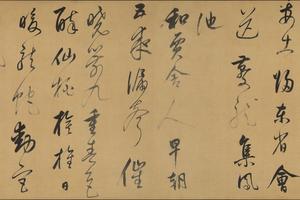 每出歸東省會
送夔龍集鳳
池
和賈舍人早朝
五夜漏聲催
曉箭九重春色
醉仙桃旌旂日
暖龍蛇動宮